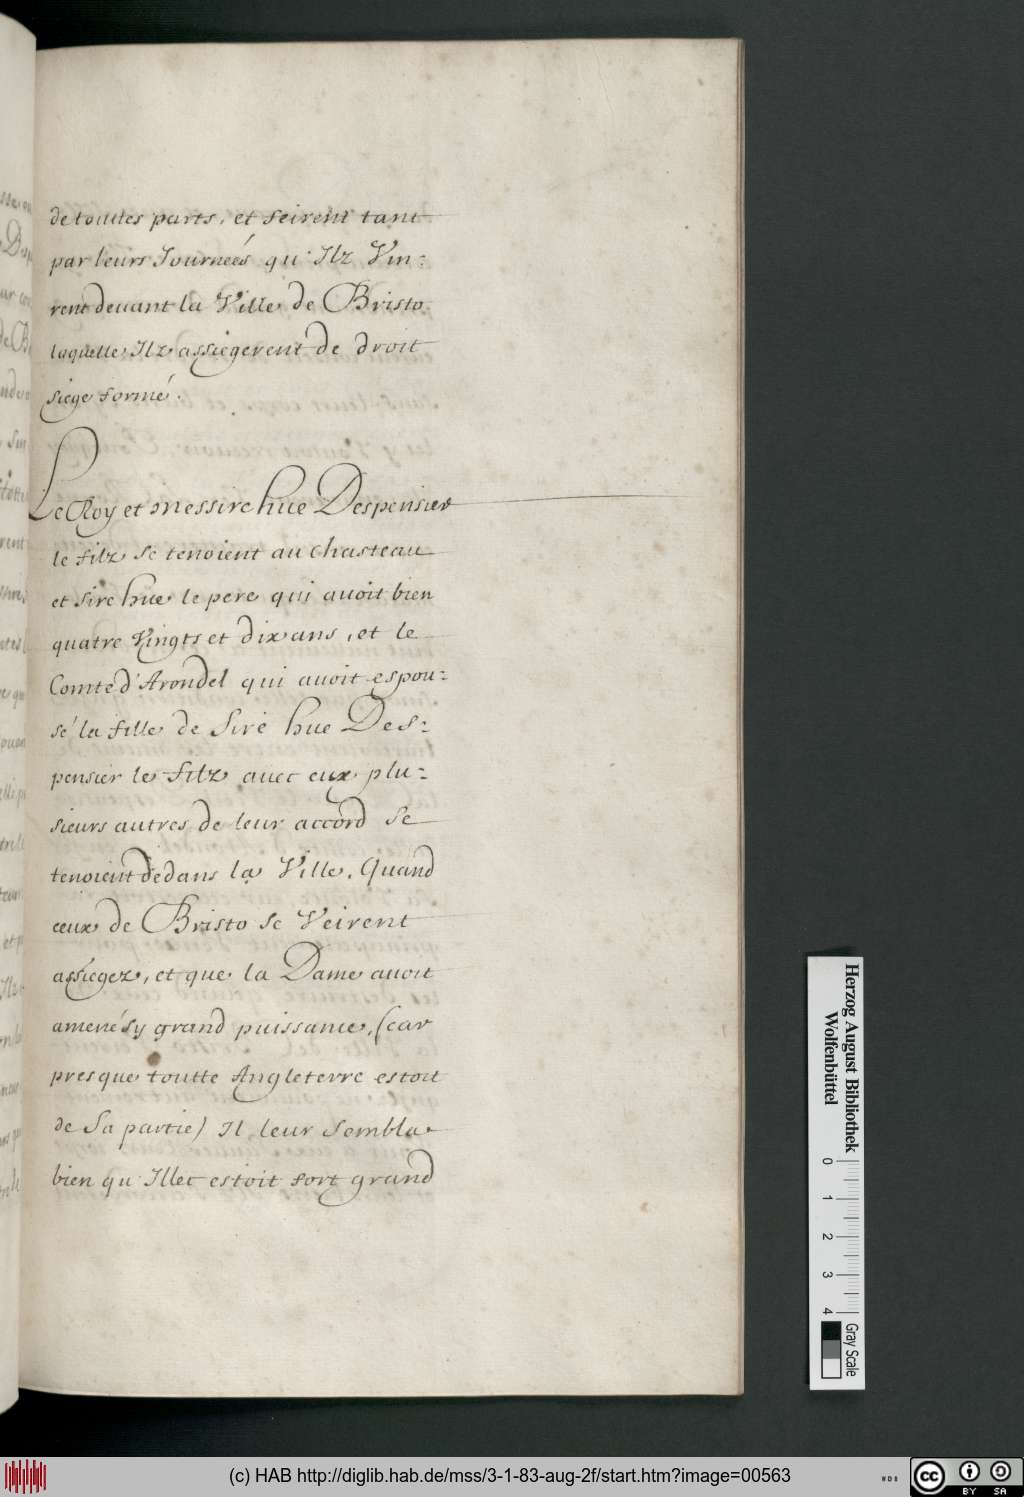 de touttes parts, et feirent tant
par leurs Journeés qu'Ilz Vin:
rent deuant la Ville de Bristo
laquelle Ilz assiegerent de droit
siege formé.
Le Roy et messire hue Despensier
le filz se tenoient au chasteau
et sire hue le pere qui auoit bien
quatre Vingts et dix ans, et le
Comte d'Arondel qui auoit espou:
sé la fille de Sire hue Des:
pensier le filz auec eux plu:
sieurs autres de leur accord se
tenoient dedans la Ville. Quand
ceux de Bristo se Veirent
assiegez, et que la Dame auoit
amené sy grand puissance, (car
presque toutte Angleterre estoit
de Sa partie) Il leur sembla
bien qu'Illec estoit fort grand
Herzog August Bibliothek
Wolfenbüttel
0 1 2 3 4
Gray Scale
(c) HAB http://diglib.hab.de/mss/3-1-83-aug-2f/start.htm?image=00563
WDB
cc BY SA